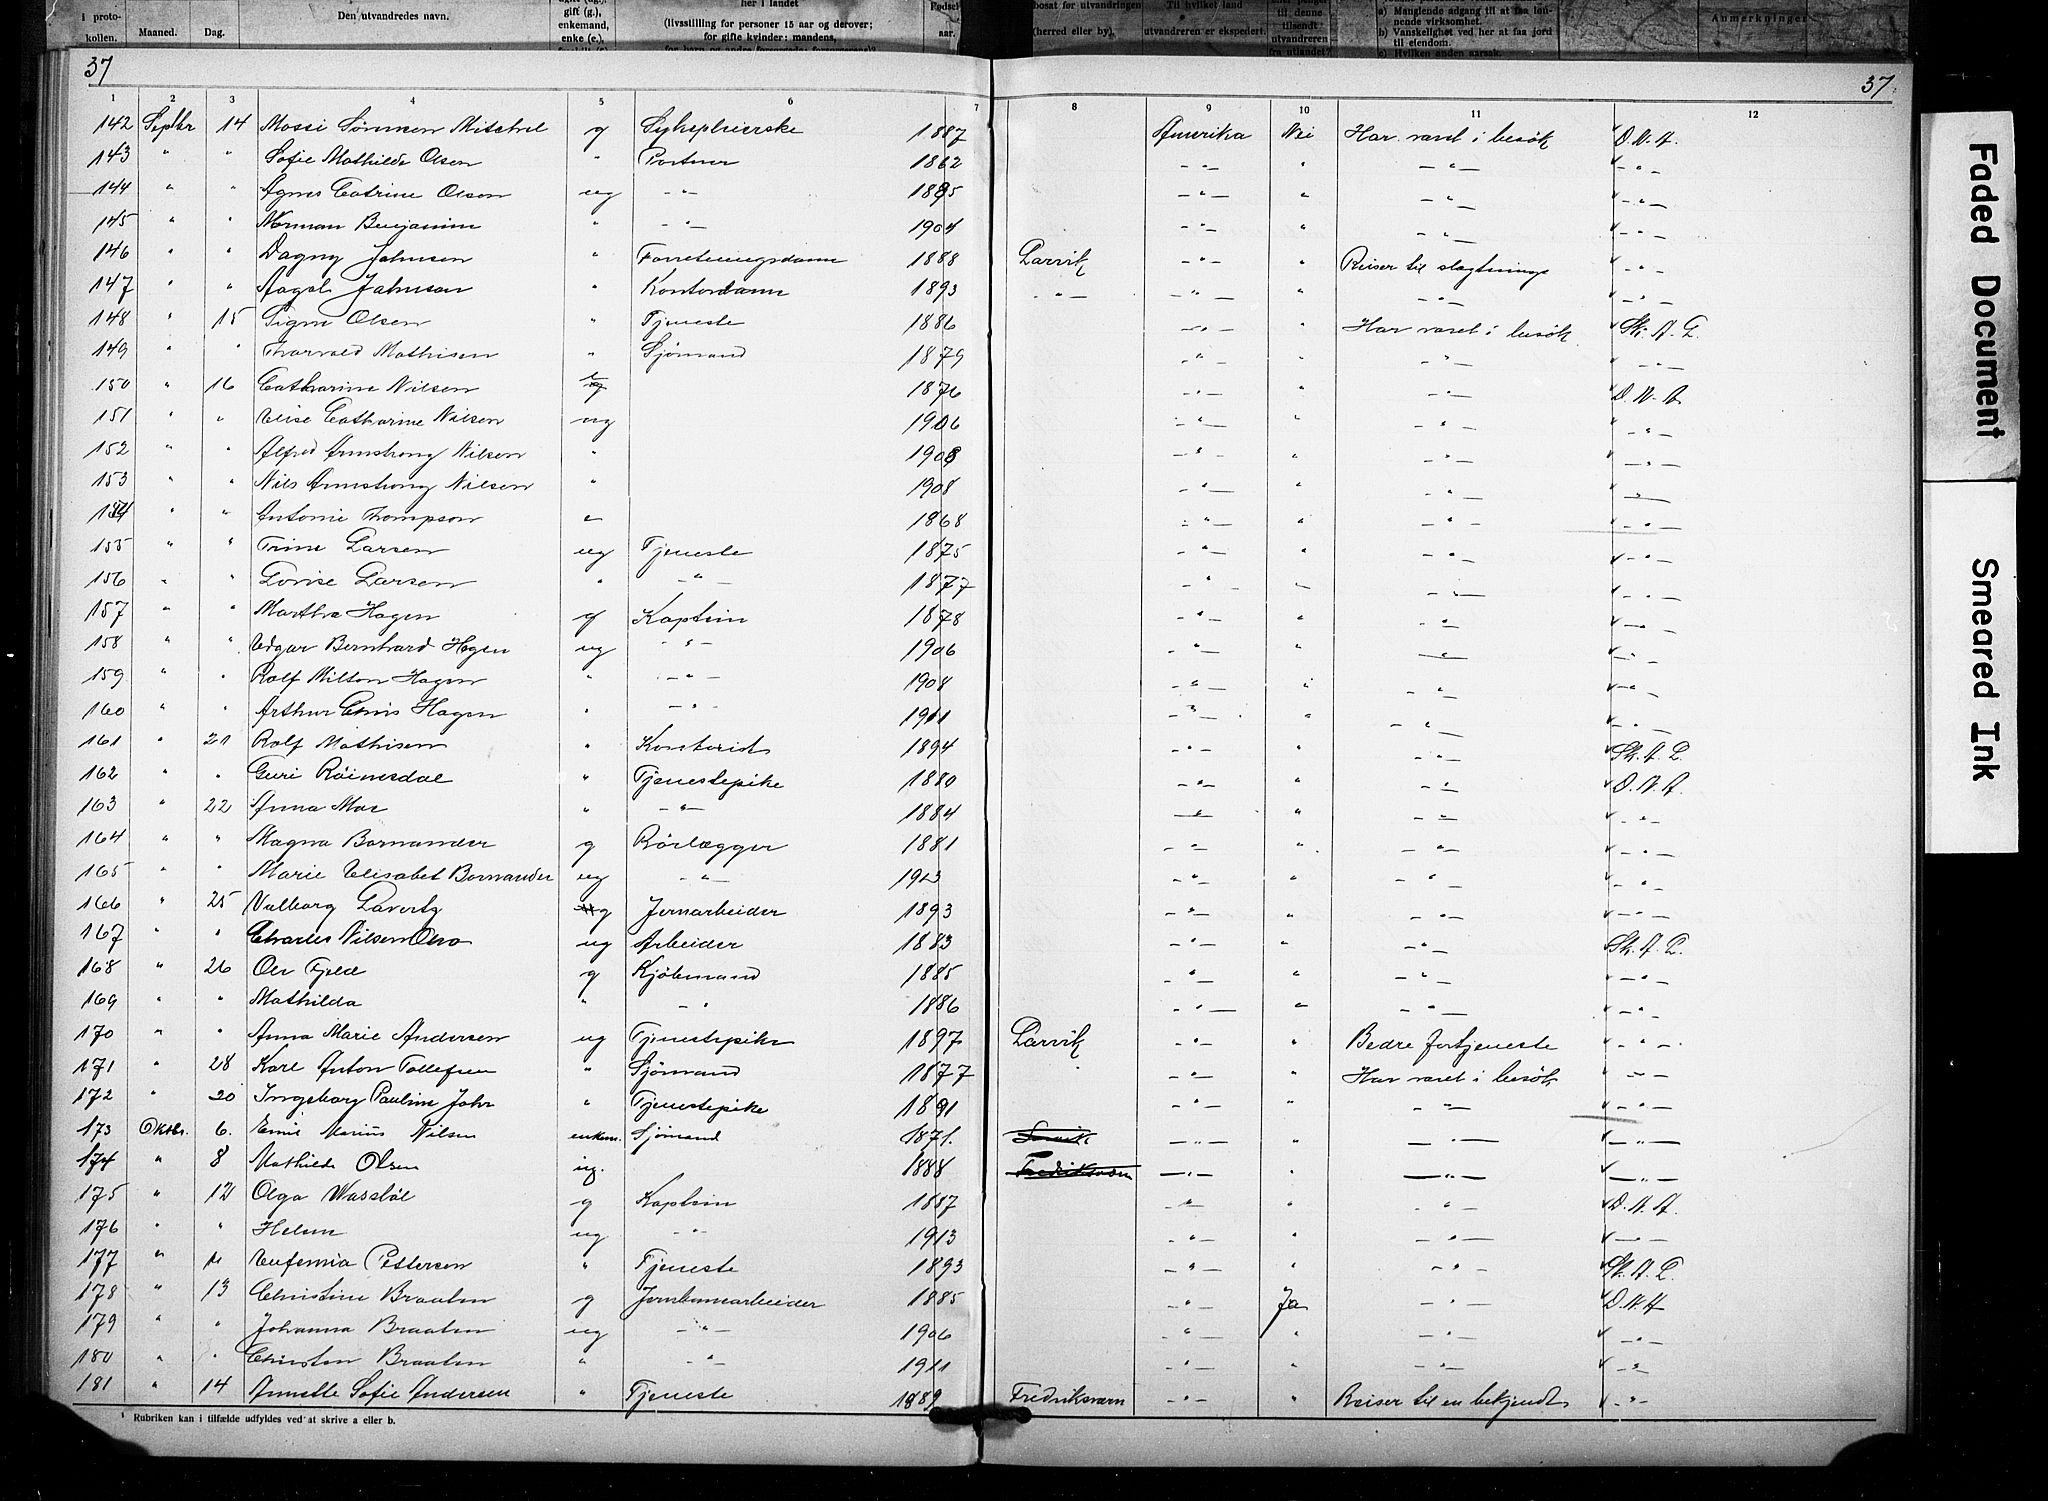 i proto-
kollen.
Maaned.
Dag.
Den utvandredes navn.
gift (g.),
enkemand,
enke (e.),
her i landet
(livsstilling for personer 15 aar og derover;
for gifte kvinder: mandens,
Fødsels-
aar.
bosat før utvandringen
(herred eller by).
Til hvilket land
utvandreren er ekspedert.
til denne
tilsendt
utvandreren
fra utlandet?
a) Manglende adgang til at faa løn-
nende virksomhet.
b) Vanskelighet ved her at faa jord
til eiendom.
c) Hvilken anden aarsak.
Anmerkninger
37 37
1 2 3 4 5 6 7 8 9 10 11 12
142 Septbr 14 Mossi Sörensen Mitchel g Sykepleierske 1887 Amerika Nei Har været i besök D.N.A.
143 " " Sofie Mathilde Olsen " Portner 1862 -"- " -"- -"-
144 " " Agnes Catrine Olsen ug -"- 1895 -"- " -"- -"-
145 " " Norman Benjamin " -"- 1904 -"- " -"- -"-
146 " " Dagny Johnsen " Forretningsdame 1888 Larvik -"- " Reiser til slegtninge -"-
147 " " Aagot Johnson " Kontordame 1893 -"- -"- " -"- -"-
148 " 15 Signe Olsen " Tjeneste 1886 -"- " Har været i besök Sk. A. L.
149 " " Thorvald Mathisen " Sjömand 1879 -"- " -"- -"-
150 " 16 Catharine Nilsen e 1876 -"- " -"- D.N.A.
151 " " Elise Catharine Nilsen ug 1906 -"- " -"- -"-
152 " " Alfred Armstrong Nilsen " 1908 -"- " -"- -"-
153 " " Nils Armstrong Nilsen " 1908 -"- " -"- -"-
154 " " Antonie Thompson e 1868 -"- " -"- -"-
155 " " Trine Larsen ug Tjeneste 1875 -"- " -"- -"-
156 " " Lovise Larsen " -"- 1877 -"- " -"- -"-
157 " " Martha Hagen g Kaptein 1878 -"- " -"- -"-
158 " " Edgar Bernhard Hagen ug -"- 1906 -"- " -"- -"-
159 " " Rolf Milton Hagen " -"- 1908 -"- " -"- -"-
160 " " Arthur Chris Hagen " -"- 1911 -"- " -"- -"-
161 " 21 Rolf Mathisen " Kontorist 1894 -"- " -"- Sk. A. L.
162 " " Guri Röinesdal " Tjenestepike 1880 -"- " -"- D.N.A.
163 " 22 Anna Moe " -"- 1884 -"- " -"- -"-
164 " " Magna Bornander g Rörlægger 1881 -"- " -"- -"-
165 " " Marie Elisabet Bornander ug -"- 1913 -"- " -"- -"-
166 " 25 Valborg Lavertz g Jernarbeider 1893 -"- " -"- -"-
167 " " Charles Nilsen Olvo ug Arbeider 1883 -"- " -"- Sk. A. L.
168 " 26 Ole Fjeld g Kjöbmand 1885 -"- " -"- -"-
169 " " Mathilda " -"- 1886 -"- " -"- -"-
170 " " Anna Marie Andersen ug Tjenestepike 1897 Larvik -"- " Bedre fortjeneste -"-
171 " 28 Karl Anton Tollefsen " Sjömand 1877 -"- " Har været i besök -"-
172 " 20 Ingeborg Pauline Johr " Tjenestepike 1891 -"- " -"- -"-
173 Oktbr. 6. Emil Marius Nilsen enkem. Sjömand 1871. Larvik -"- " -"- -"-
174 " 8 Mathilde Olsen ug. 1888 Fredriksværn -"- " -"- -"-
175 " 12 Olga Wassböl g Kaptein 1887 -"- " -"- D.N.A.
176 " " Helene ug -"- 1913 -"- " -"- -"-
177 " 11 Eufemia Pettersen " Tjeneste 1893 -"- " -"- Sk. A. L.
178 " 13 Christine Braaten g Jernbanearbeider 1885 -"- Ja -"- D.N.A
179 " " Johanna Braaten ug -"- 1906 -"- " -"- -"-
180 " " Christen Braaten " -"- 1911 -"- " -"- -"-
181 " 14 Annette Sofie Andersen " Tjeneste 1889 Fredriksværn -"- " Reiser til en bekjendt -"-
¹ Rubriken kan i tilfælde udfyldes ved at skrive a eller b.
Faded Document
Smeared Ink